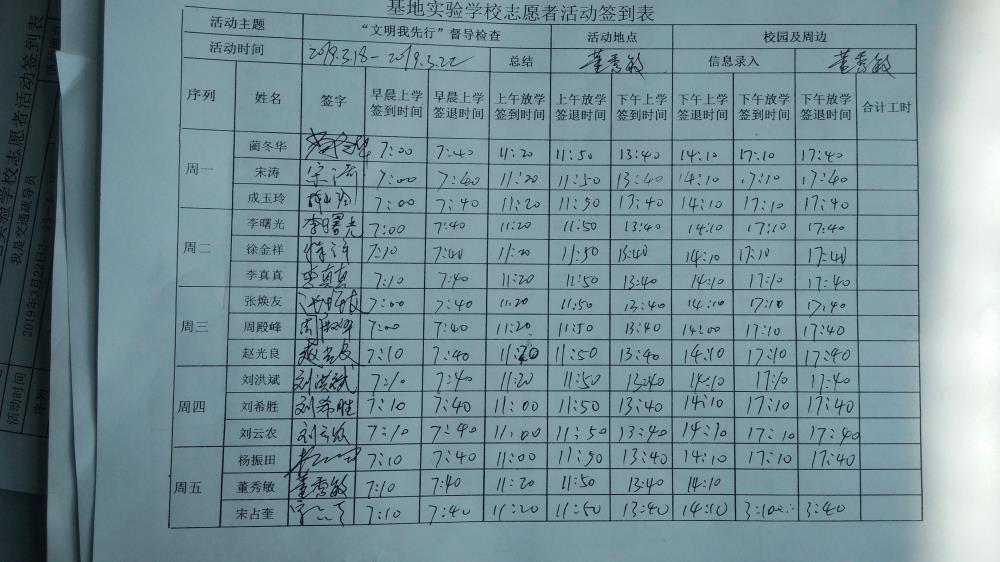 基地实验学校志愿者活动签到表
活动主题 “文明我先行”督导检查 活动地点 校园及周边
活动时间 2019.3.18-2019.3.22 总结 董秀敏 信息录入 董秀敏
序列 姓名 签字 早晨上学签到时间 早晨上学签退时间 上午放学签到时间 上午放学签退时间 下午上学签到时间 下午上学签退时间 下午放学签到时间 下午放学签退时间 合计工时
周一 蔺冬华 7:00 7:40 11:20 11:50 13:40 14:10 17:10 17:40
宋涛 宋涛 7:00 7:40 11:20 11:50 13:40 14:10 17:10 17:40
成玉玲 7:00 7:40 11:20 11:50 13:40 14:10 17:10 17:40
周二 李曙光 李曙光 7:00 7:40 11:20 11:50 13:40 14:10 17:10 17:40
徐金祥 7:10 7:40 11:20 11:50 13:40 14:10 17:10 17:40
李真真 李真真 7:10 7:40 11:20 11:50 13:40 14:10 17:10 17:40
周三 张焕友 7:00 7:40 11:20 11:50 13:40 14:10 17:10 17:40
周殿峰 7:00 7:40 11:20 11:50 13:40 14:00 17:10 17:40
赵光良 赵光良 7:10 7:40 11:20 11:50 13:40 14:10 17:10 17:40
周四 刘洪斌 刘洪斌 7:10 7:40 11:20 11:50 13:40 14:10 17:10 17:40
刘希胜 刘希胜 7:10 7:40 11:00 11:50 13:40 14:10 17:10 17:40
刘云农 刘云农 7:10 7:40 11:00 11:50 13:40 14:10 17:10 17:40
周五 杨振田 7:10 7:40 11:00 11:50 13:40 14:10 17:10 17:40
董秀敏 董秀敏 7:10 7:40 11:20 11:50 13:40 14:10
宋占奎 7:10 7:40 11:20 11:50 13:40 14:10 3:10 3:40
实验学校志愿者活动签到表
我是交通疏导员
活动时间
序列